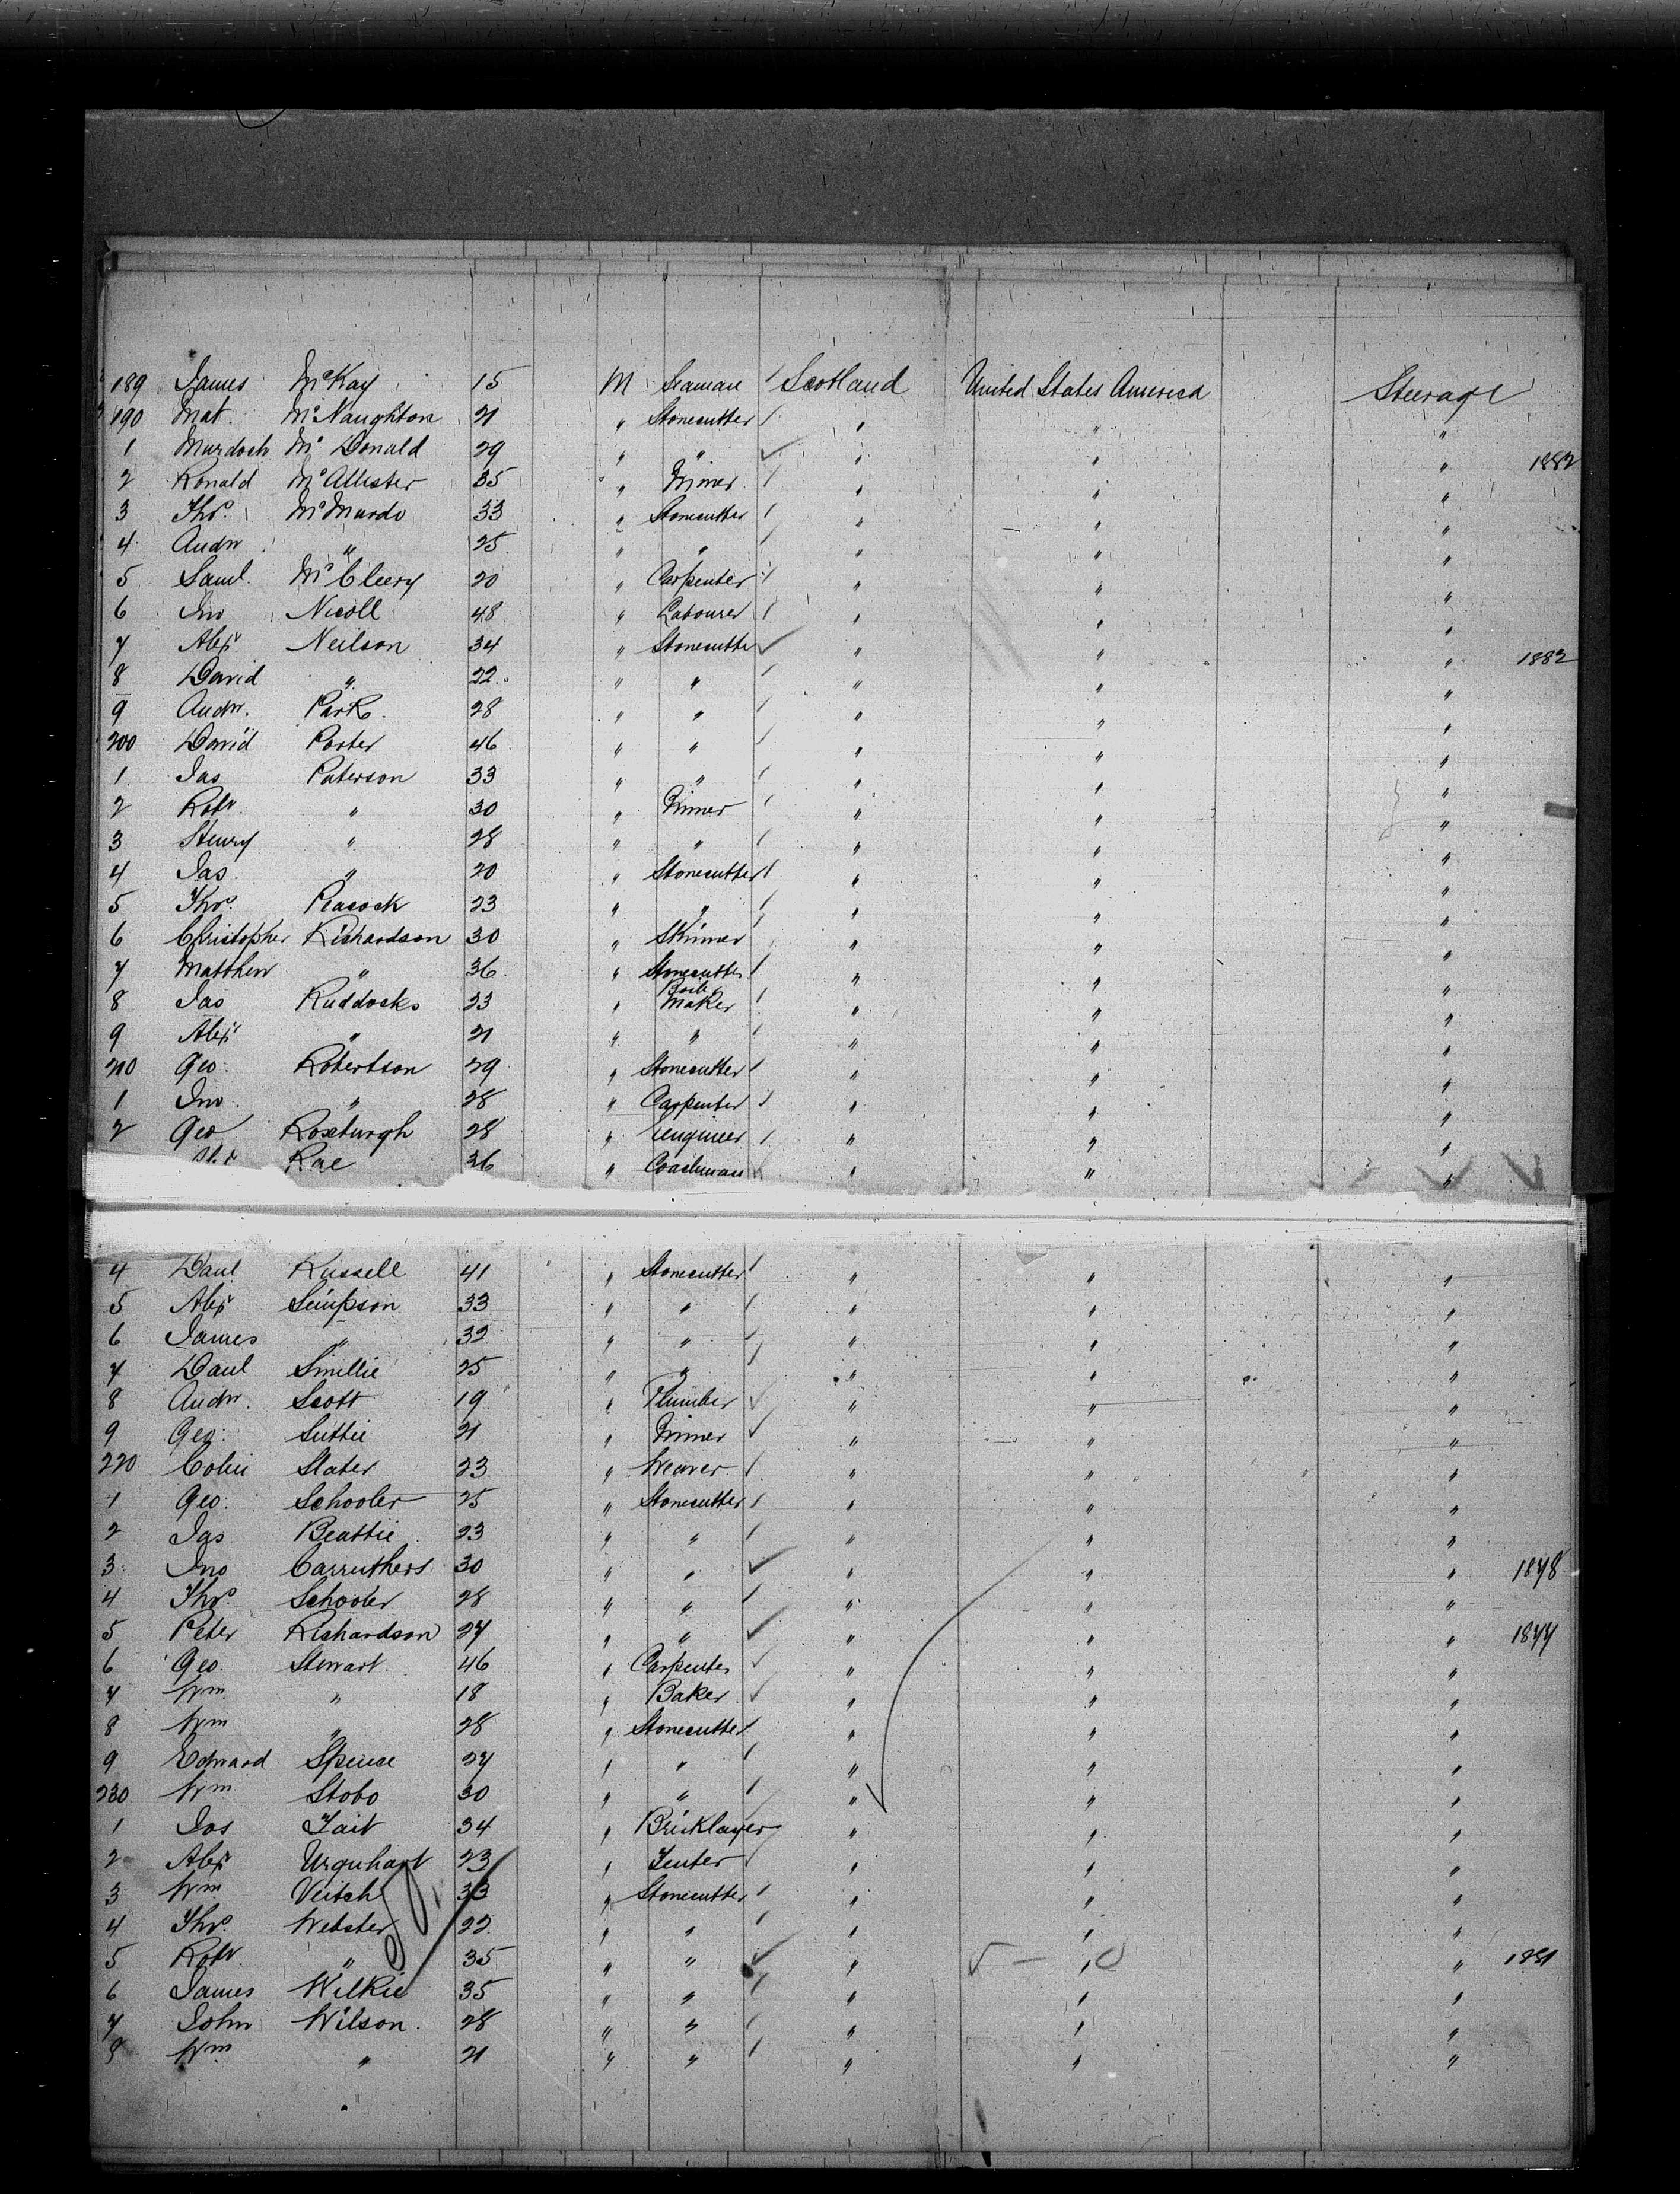 189 James McKay 15 M Seaman Scotland United States America Steerage
190 Mat McNaughton 21 " Stonecutter " " "
1 Murdoch McDonald 29 " " " " " 1882
2 Ronald McAllister 35 " Miner " " "
3 Thos. McMurdo 33 " Stonecutter " " "
4 Andw " 25 " " " " "
5 Saml. McCleery 20 " Carpenter " " "
6 Jno Nicoll 48 " Labourer " " "
7 Alexr Neilson 34 " Stonecutter " " " 1882
8 David " 22 " " " " "
9 Andw. Park 28 " " " " "
200 David Porter 46 " " " " "
1 Jas Paterson 33 " " " " "
2 Robt. " 30 " Miner " " "
3 Henry " 28 " " " " "
4 Jas. " 20 " Stonecutter " " "
5 Thos. Peacock 23 " " " " "
6 Christopher Richardson 30 " Skinner " " "
7 Matthew " 36 " Stonecutter " " "
8 Jas Ruddocks 23 " Boiler Maker " " "
9 Alexr " 21 " " " " "
210 Geo. Robertson 29 " Stonecutter " " "
1 Jno. " 28 " Carpenter " " "
2 Geo Roxburgh 28 " Engineer " " "
Rae 36 " Coachman " " "
4 Danl Russell 41 " Stonecutter " " "
5 Alexr Simpson 33 " " " " "
6 James " 32 " " " " "
7 Danl Smillie 25 " " " " "
8 Andw. Scott 19 " Plumber " " "
9 Geo. Suttie 21 " Miner " " "
220 Colin Slater 23 " Weaver " " "
1 Geo. Schooler 25 " Stonecutter " " "
2 Jas Beattie 23 " " " " "
3 Jno Carruthers 30 " " " " " 1878
4 Thos. Schooler 28 " " " " "
5 Peter Richardson 27 " " " " " 1877
6 Geo. Stewart 46 " Carpenter " " "
7 Wm " 18 " Baker " " "
8 Wm " 28 " Stonecutter " " "
9 Edward Spence 27 " " " " "
230 Wm Stobo 30 " " " " "
1 Jos Tait 34 " Bricklayer " " "
2 Alexr Urquhart 23 " Tenter " " "
3 Wm Veitch 33 " Stonecutter " " "
4 Thos. Webster 22 " " " " "
5 Robt. " 35 " " " " " 1881
6 James Wilkie 35 " " " " "
7 John Wilson 28 " " " " "
8 Wm " 21 " " " " "